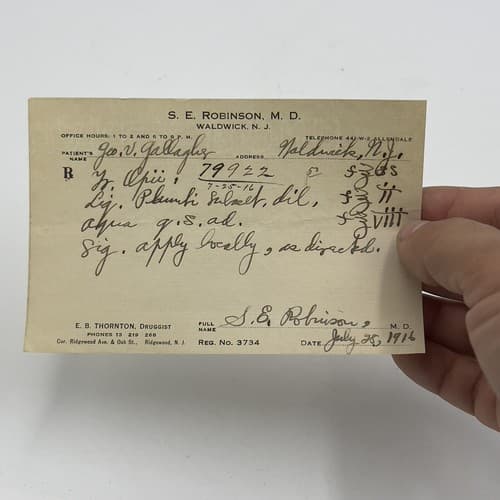 S. E. ROBINSON, M. D.
WALDWICK, N. J.
OFFICE HOURS: 1 TO 2 AND 6 TO 8 P. M. TELEPHONE 441-W-2 ALLENDALE
PATIENT'S NAME Geo. V. Gallagher ADDRESS Waldwick, N.J.
℞ Tr. Opii; 79922 ss
7-25-16
Liq. Plumbi Subacet. dil. ii
Aqua q.s. ad. viii
Sig. apply locally, as directed.
E. B. THORNTON, DRUGGIST
PHONES 13 219 268
Cor. Ridgewood Ave. & Oak St., Ridgewood, N. J.
FULL NAME S. E. Robinson, M. D.
REG. NO. 3734 DATE July 25, 1916